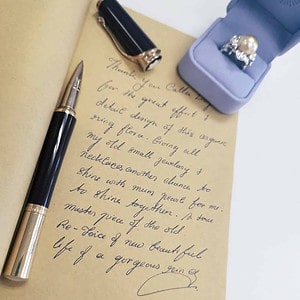 Thank You Callie
for the great effort &
detail design of this organic
ring flora. Giving all
my old small jewelry &
necklaces another chance to
shine with mum pearl for me.
to shine together. A true
master piece of the old
Re-Voice of new beautiful
life of a gorgeous